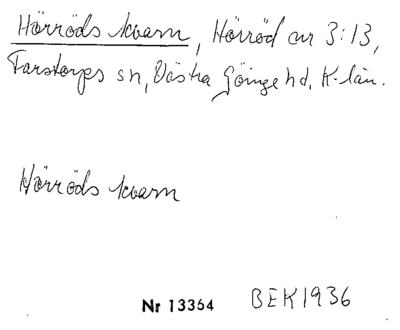 Hörröds kvarn, Hörröd nr 3:13,
Farstorps sn, Västra Göinge hd, K-län.
Hörröds kvarn
Nr 13364 BEK1936